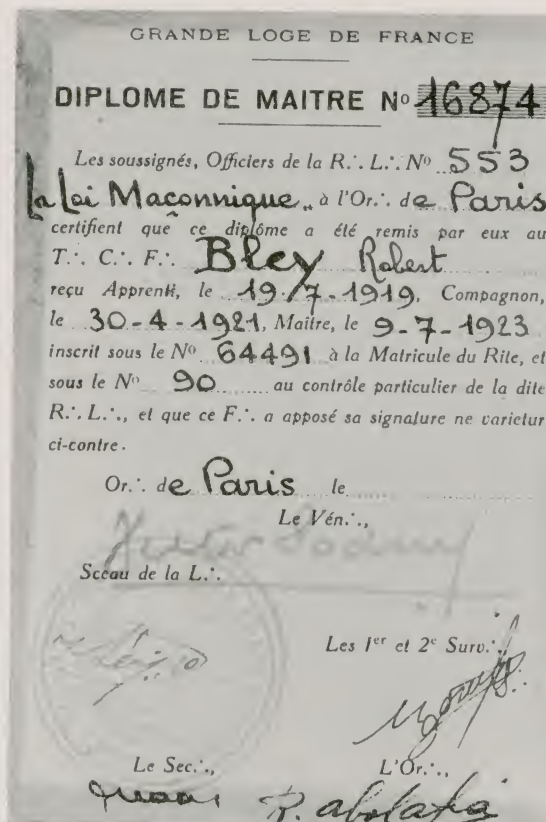 GRANDE LOGE DE FRANCE
DIPLOME DE MAITRE No 16874
Les soussignés, Officiers de la R∴ L∴ No 553
La Loi Maçonnique „ à l'Or∴ de Paris
certifient que ce diplôme a été remis par eux au
T∴ C∴ F∴ Bley Robert
reçu Apprenti, le 19-7-1919, Compagnon,
le 30-4-1921, Maitre, le 9-7-1923
inscrit sous le No 64491 à la Matricule du Rite, et
sous le No 90 au contrôle particulier de la dite
R∴ L∴, et que ce F∴ a apposé sa signature ne varietur
ci-contre.
Or∴ de Paris le
Le Vén∴,
Sceau de la L∴
Les 1er et 2e Surv∴,
Le Sec∴,
L'Or∴,